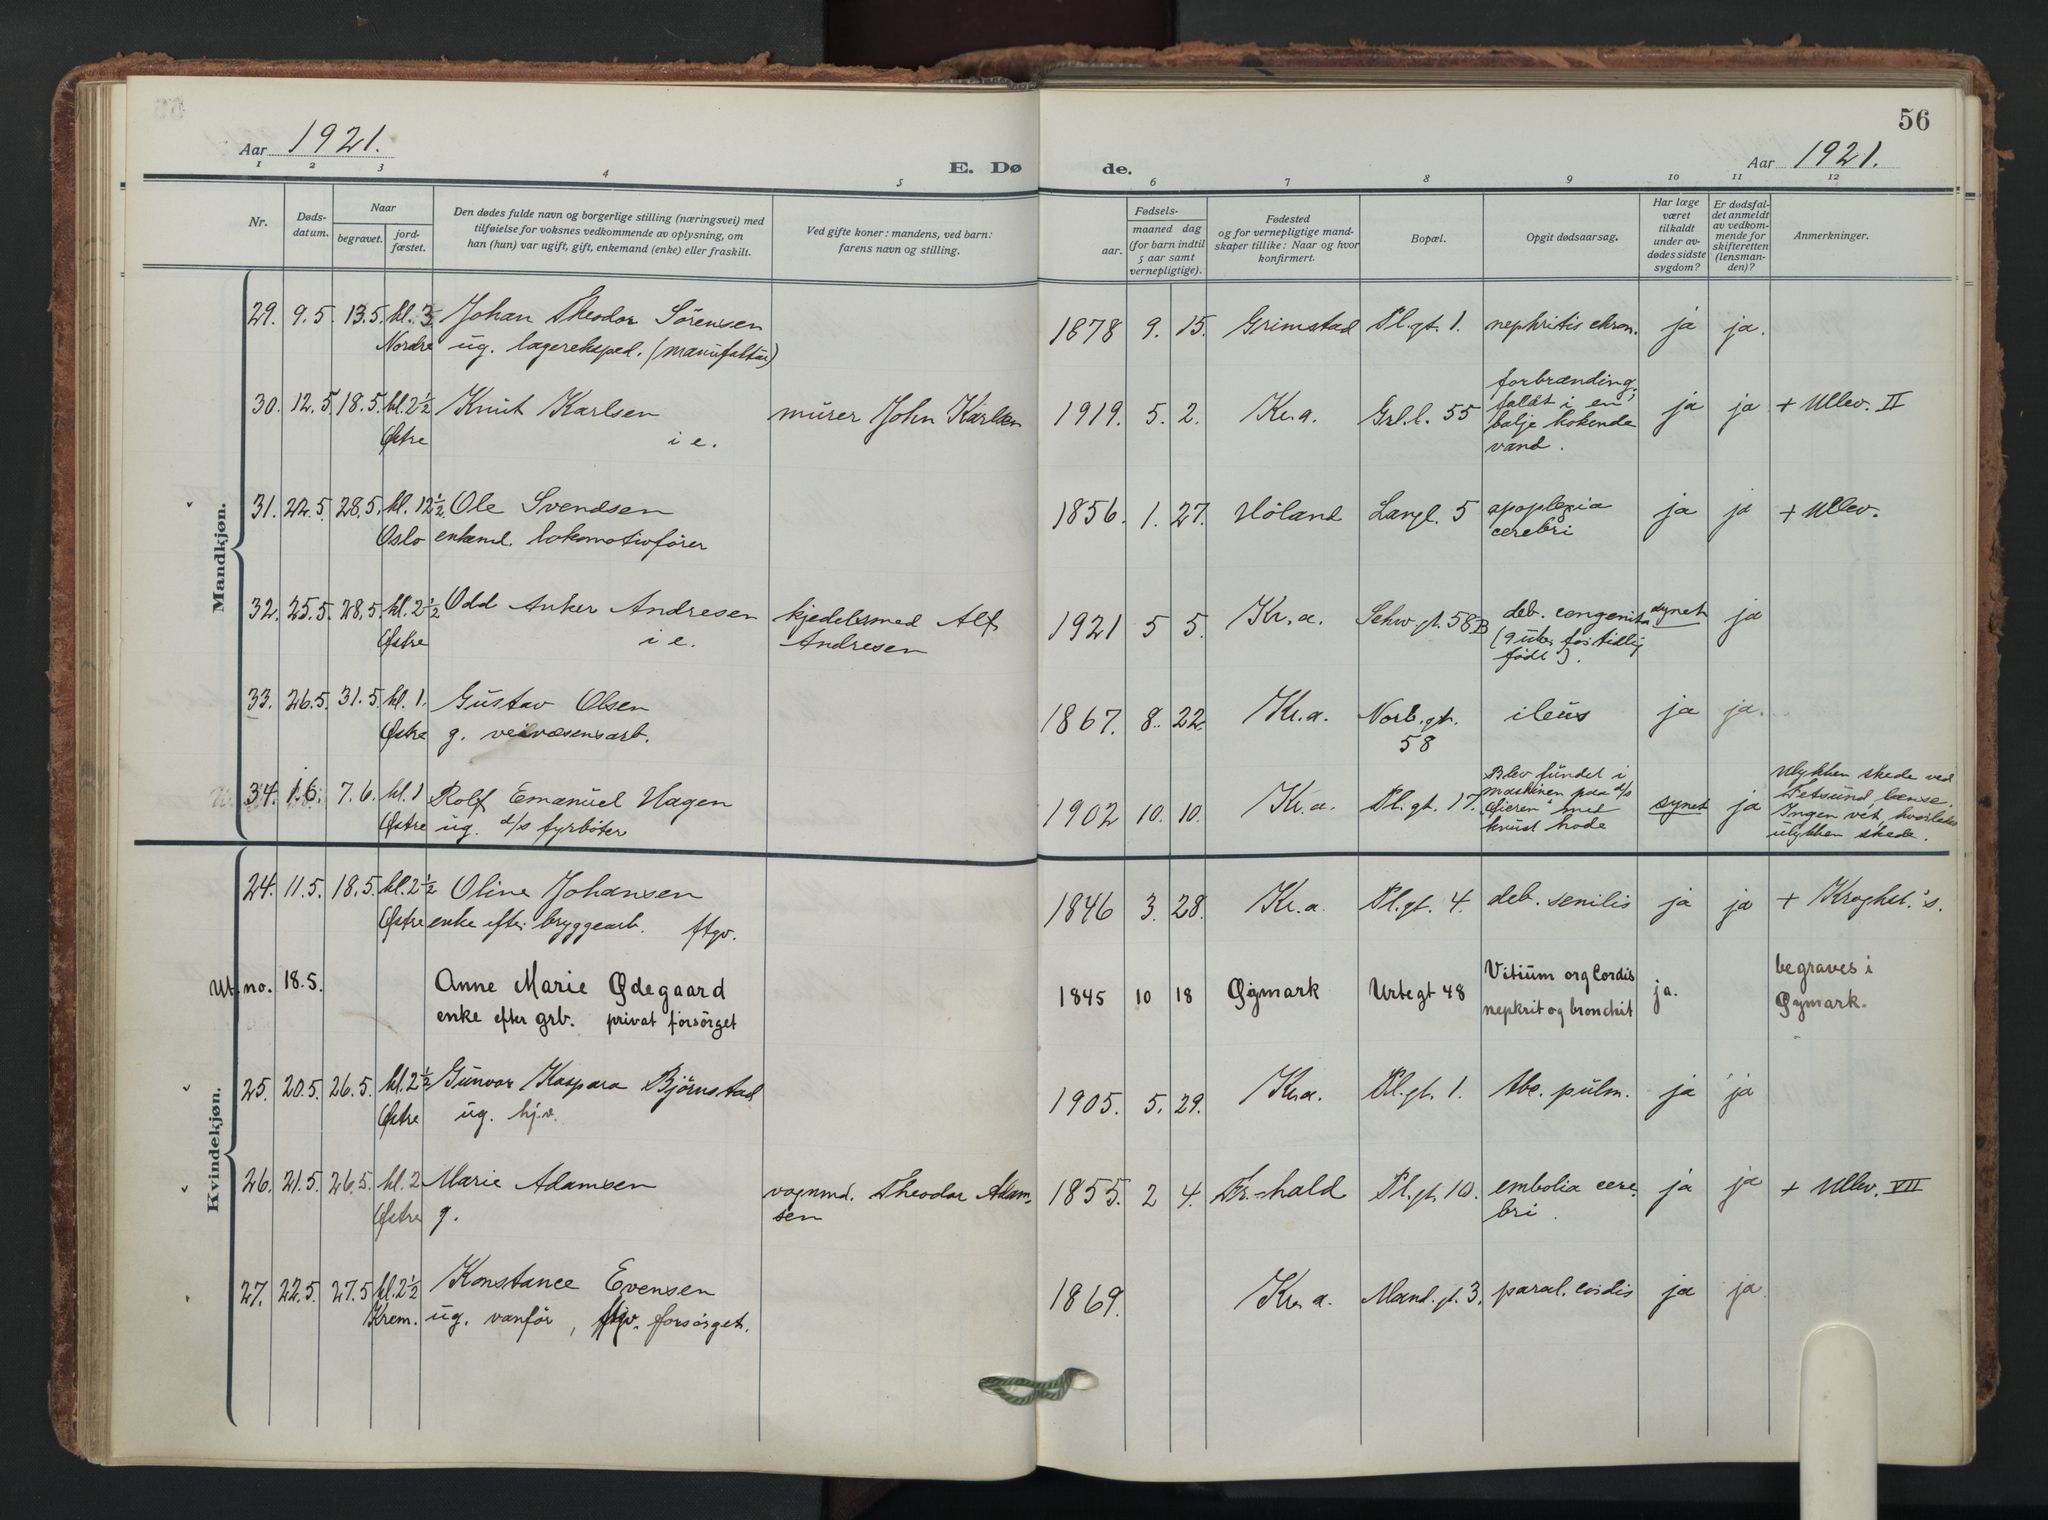 56
Aar 1921.
E. Døde.
Aar 1921.
1 2 3 4 5 6 7 8 9 10 11 12
Nr.
Dødsdatum.
Naar
begravet.
jordfæstet.
Den dødes fulde navn og borgerlige stilling (næringsvei) med
tilføielse for voksnes vedkommende av oplysning, om
han (hun) var ugift, gift, enkemand (enke) eller fraskilt.
Ved gifte koner: mandens, ved barn:
farens navn og stilling.
Fødsels-
aar.
maaned dag
(for barn indtil
5 aar samt
vernepligtige).
Fødested
og for vernepligtige mand-
skaper tillike: Naar og hvor
konfirmert.
Bopæl.
Opgit dødsaarsag.
Har læge
været
tilkaldt
under av-
dødes sidste
sygdom?
Er dødsfal-
det anmeldt
av vedkom-
mende for
skifteretten
(lensman-
den)?
Anmerkninger.
Mandkjøn.
29. 9.5. 13.5. kl. 3 Johan Theodor Sørensen 1878 9. 15. Grimstad Pl.gt. 1. nephritis chron. ja ja.
Nordre ug. lagereksped. (manufaktur)
30. 12.5. 18.5. kl. 2½ Knut Karlsen murer John Karlsen 1919. 5. 2. Kr.a. Grl.l. 55 forbrænding, faldt i en balje kokende vand. ja ja + Ullev. II
Østre i e.
31. 22.5. 28.5. kl. 12½ Ole Svendsen 1856. 1. 27. Høland Langl. 5 apoplexia cerebri ja ja + Ullev.
Oslo enkemd. lokomotivfører
32. 25.5. 28.5. kl. 2½ Odd Anker Andresen kjedelsmed Alf Andresen 1921 5 5. Kr.a. Schw.gt. 58B deb. congenita (9 uker for tidlig født). synet ja
Østre i e.
33. 26.5. 31.5. kl. 1. Gustav Olsen 1867. 8. 22. Kr.a. Norb.gt. 58 ileus ja ja.
Østre g. veivæsensarb.
34. 1.6. 7.6. kl. 1 Rolf Emanuel Hagen 1902 10. 10. Kr.a. Pl.gt. 17. Blev fundet i maskinen paa d/s "Øieren" med knust hode synet ja Ulykken skede ved Fetsund lænse. Ingen vet, hvorledes ulykken skede.
Østre ug. d/s fyrbøter
Kvindekjøn.
24. 11.5. 18.5. kl. 2½ Oline Johansen 1846 3. 28. Kr.a. Pl.gt. 4. deb. senilis ja ja + Kroghst.'s.
Østre enke efter bryggearb. ftgv.
Ut. no. 18.5. Anne Marie Ødegaard 1845 10 18 Øymark Urtegt 48 Vitium org Cordis nephrit og bronchit ja. begraves i Øymark.
enke efter grb. privat forsørget
25. 20.5. 26.5. kl. 2½ Gunvor Kaspara Bjørnstad 1905. 5. 29. Kr.a. Pl.gt. 1. tbc. pulm. ja ja
Østre ug. hj.v.
26. 21.5. 26.5. kl. 2 Marie Adamsen vognmd. Theodor Adamsen 1855. 2 4. Fr.hald Pl.gt. 10. embolia cerebri. ja ja + Ullev. VII
Østre g.
27. 22.5. 27.5 kl. 2½ Konstance Evensen 1869. Kr.a. Mand.gt. 3. paral. cordis ja ja.
Krem. ug. vanfør, ftgv. forsørget.